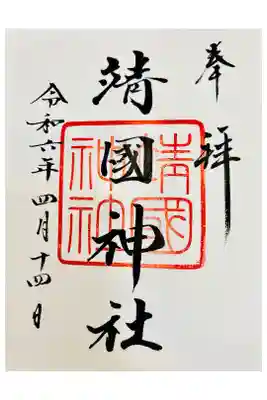 奉拝
靖國神社
靖國神社
令和六年四月十四日